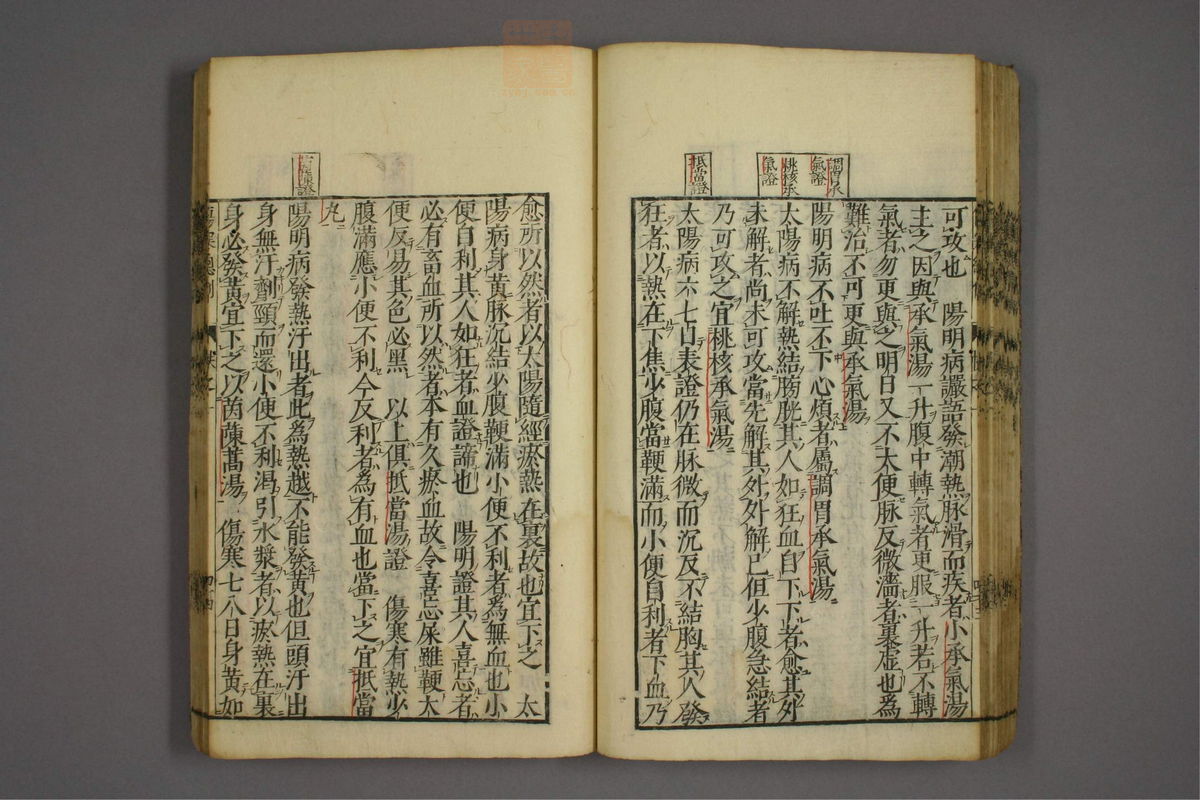 調胃承
氣證
桃核承
氣證
抵當證
可攻也　陽明病讝語發潮熱脉滑而疾者小承氣湯
主之因與承氣湯一升腹中轉氣者更服一升若不轉
氣者勿更與之明日又不大便脉反微濇者裏虛也為
難治不可更與承氣湯
陽明病不吐不下心煩者屬調胃承氣湯
太陽病不解熱結膀胱其人如狂血自下下者愈其外
未解者尚未可攻當先解其外外解已但少腹急結者
乃可攻之宜桃核承氣湯
太陽病六七日表證仍在脉微而沉反不結胸其人發
狂者以熱在下焦少腹當鞕滿而小便自利者下血乃
愈所以然者以太陽隨經瘀熱在裏故也宜下之　太
陽病身黃脉沉結少腹鞕滿小便不利者為無血也小
便自利其人如狂者血證諦也　陽明證其人喜忘者
必有畜血所以然者本有久瘀血故令喜忘屎雖鞕大
便反易其色必黑　以上俱抵當湯證　傷寒有熱少
腹滿應小便不利今反利者為有血也當下之宜抵當
丸
陽明病發熱汗出者此為熱越不能發黃也但頭汗出
身無汗劑頸而還小便不利渴引水漿者以瘀熱在裏
身必發黃宜下之以茵蔯蒿湯　傷寒七八日身黃如